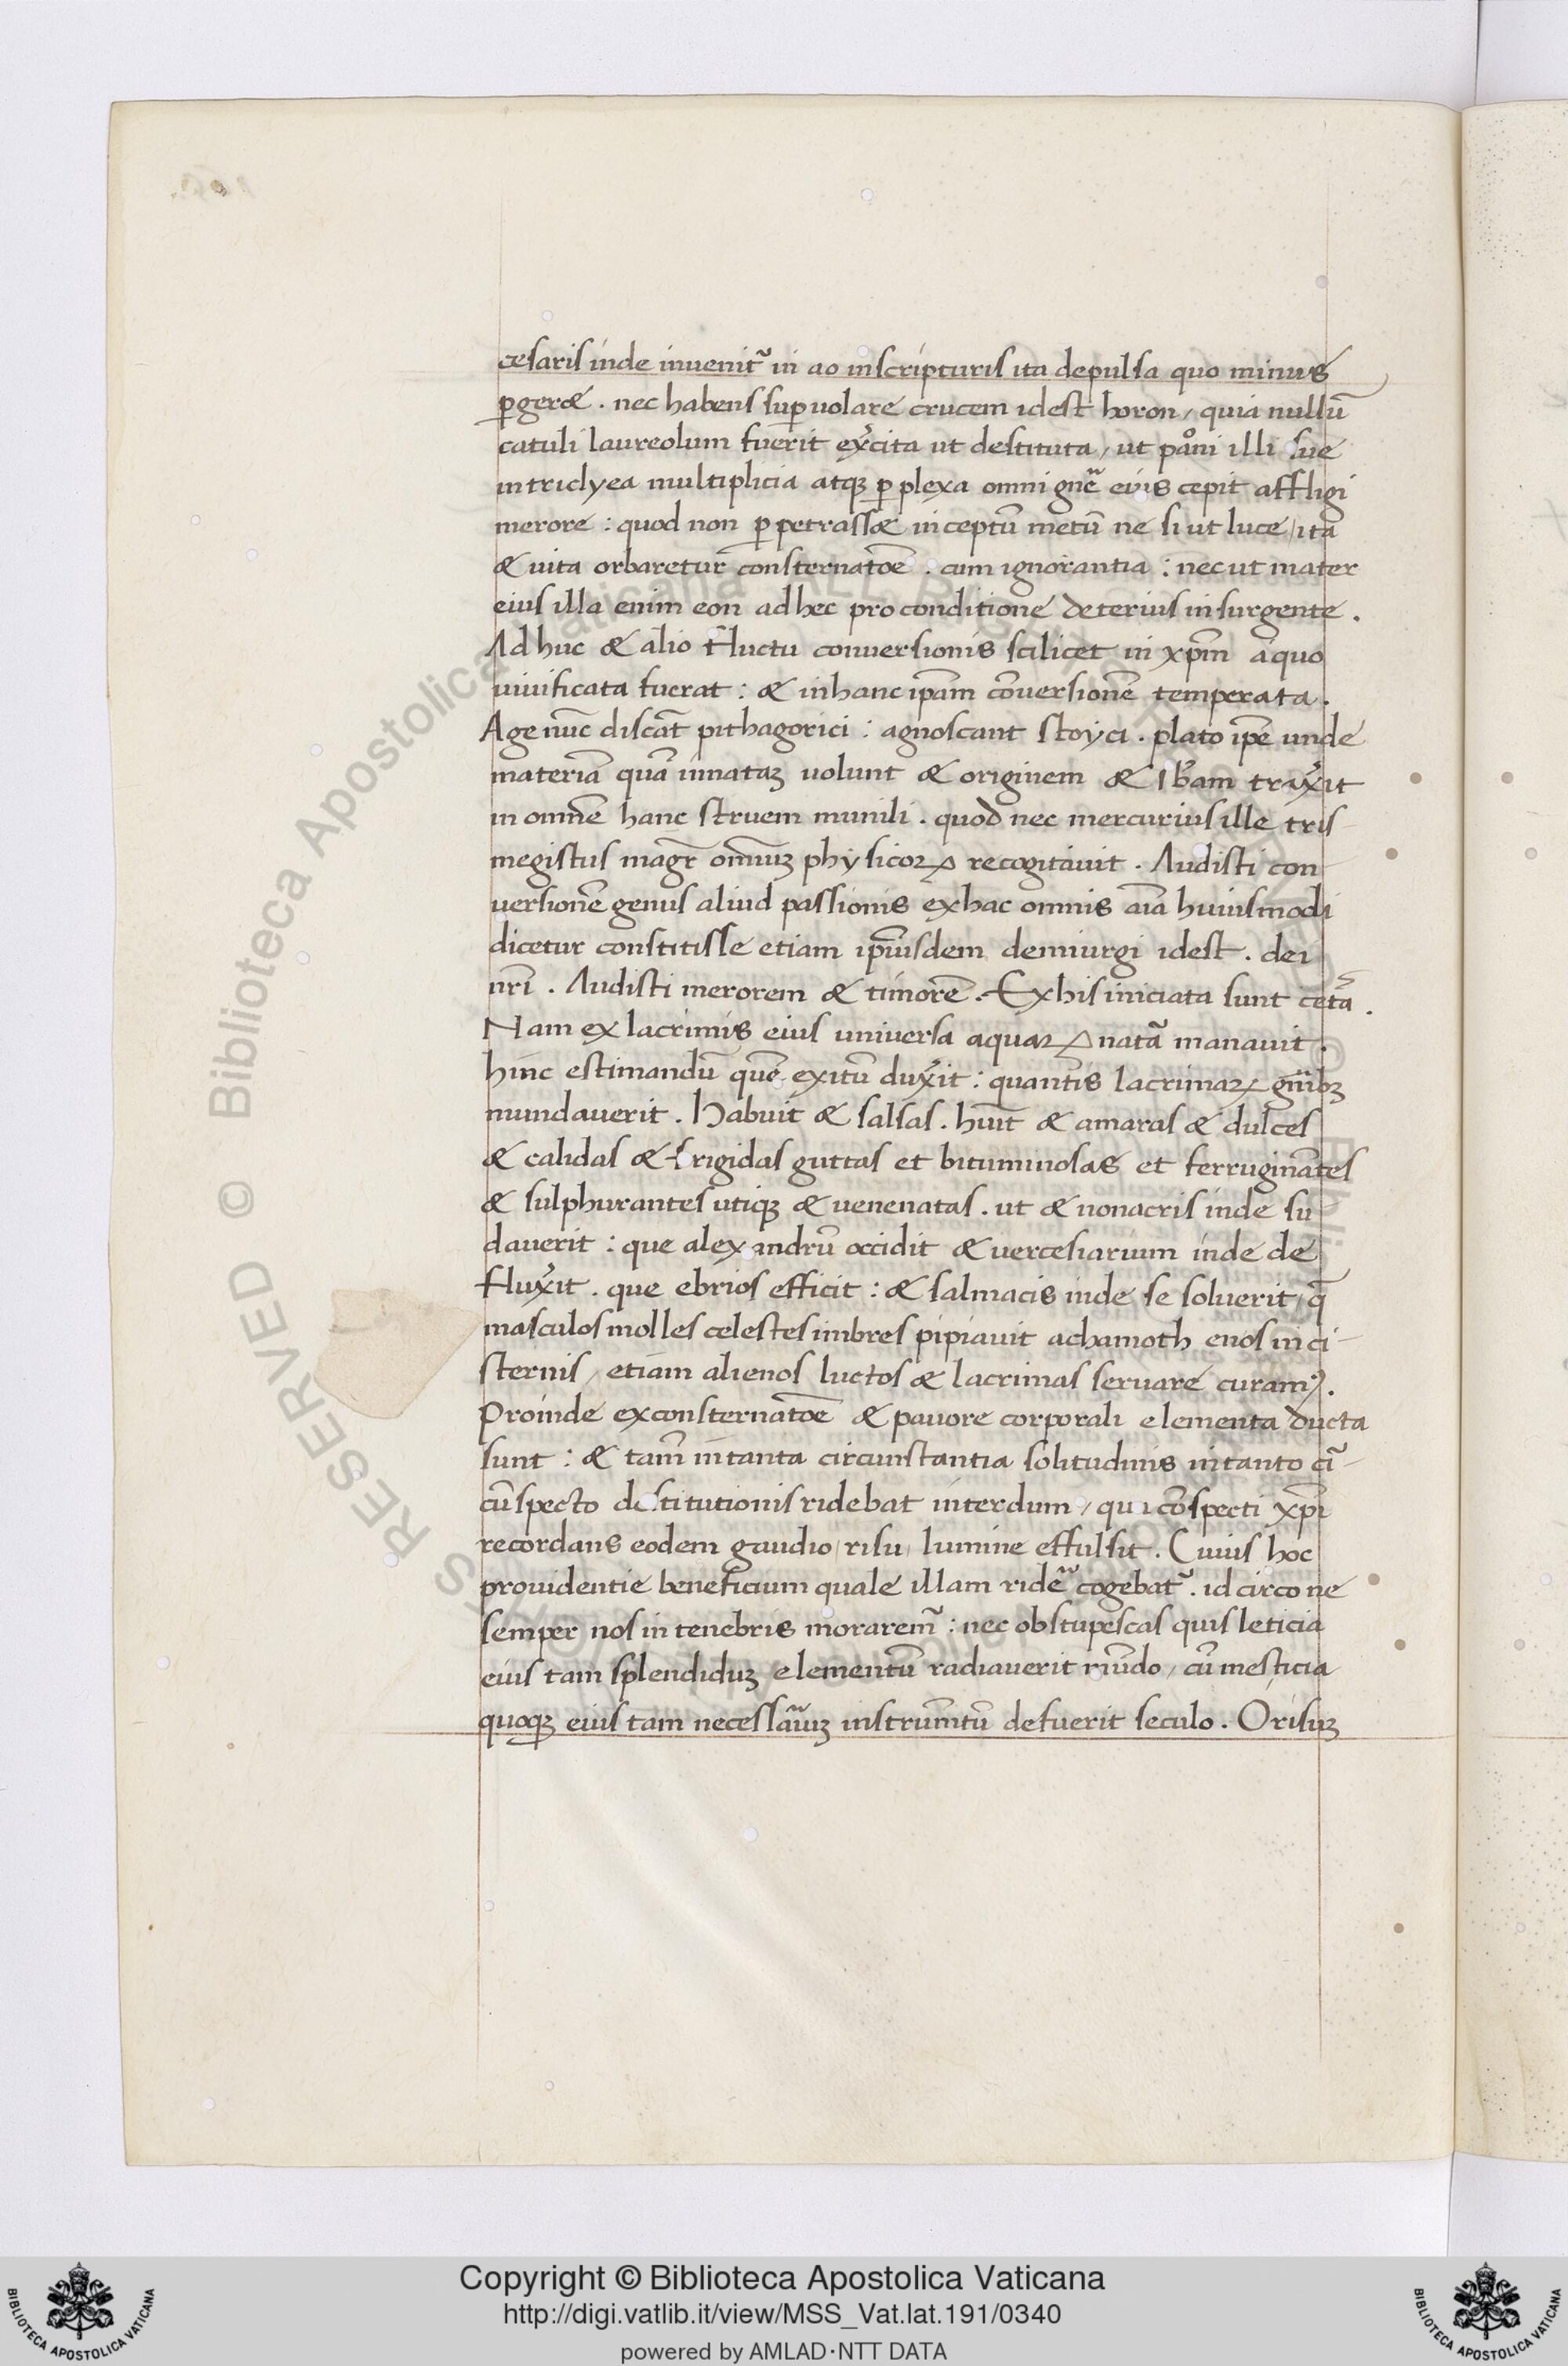 cesaris inde invenit᷈ in ao in scripturis ita depulsa quo minus
ꝑgeræ . nec habens suꝑvolare crucem idest horon / quia nullū
catuli laureolum fuerit excita ut destituta / ut påni illi sue
intriclyea multiplicia atqꝫ ꝑplexa omni gne᷈ eius cepit affligi
merore : quod non ꝑpetrassæ inceptū metū ne si ut luce / ita
& vita orbaretur consternatōe . cum ignorantia : nec ut mater
eius illa enim eon ad hec pro conditione deterius insurgente .
Ad huc & alio fluctu conversionis scilicet in xp̄m a quo
vivificata fuerat : & in hanc ip̄am cōversionē temperata .
Age nūc discāt pithagorici : agnoscant stoyci . plato ip̄e unde
materiā quā innataꝫ volunt & originem & sb̄am traxit
in omnē hanc struem munili . quod nec mercurius ille tris-
megistus magr̄ omniūꝫ physicoꝝ recogitavit . Audisti con-
versionē genus aliud passionis ex hac omnis aīa huiusmodi
dicetur constitisse etiam ip̄iusdem demiurgi idest . dei
nr̄i . Audisti merorem & timorē . Ex his iniciata sunt ceta᷈ .
Nam ex lacrimis eius universa aquaꝝ nata᷈ manavit .
hinc estimandū quē exitū duxit : quantis lacrimaꝝ gn̄ibꝫ
mundaverit . Habuit & salsas . huīt & amaras & dulces
& calidas & frigidas guttas et bituminosas et ferruginātes
& sulphurantes utiqꝫ & venenatas . ut & nonacris inde su
daverit : que alexandrū occidit & vercesiarium inde de
fluxit . que ebrios efficit : & salmacis inde se solverit / q̄
masculos molles celestes imbres pipiavit achamoth enos in ci-
sternis / etiam alienos luctos & lacrimas servare curamꝰ .
Proinde ex consternatōe & pavore corporali elementa ducta
sunt : & tam̄ in tanta circunstantia solitudinis in tanto ci᷈-
cūspecto destitutionis ridebat interdum / qui cōspecti xp̄i
recordans eodem gaudio / risu / lumine effulsit . Cuius hoc
providentie beneficium quale illam ride᷈ cogebat᷈ . id circo ne
semper nos in tenebris morarem᷈ : nec obstupescas quis leticia
eius tam splendiduꝫ elementū radiaverit mūdo / cū mesticia
quoqꝫ eius tam necessa᷈iuꝫ instrum̄tū defuerit seculo . O risuꝫ
Copyright © Biblioteca Apostolica Vaticana
http://digi.vatlib.it/view/MSS_Vat.lat.191/0340
powered by AMLAD·NTT DATA
BIBLIOTECA APOSTOLICA VATICANA
BIBLIOTECA APOSTOLICA VATICANA